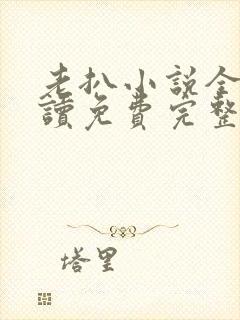 老扒小說全
讀免費完整
塔里